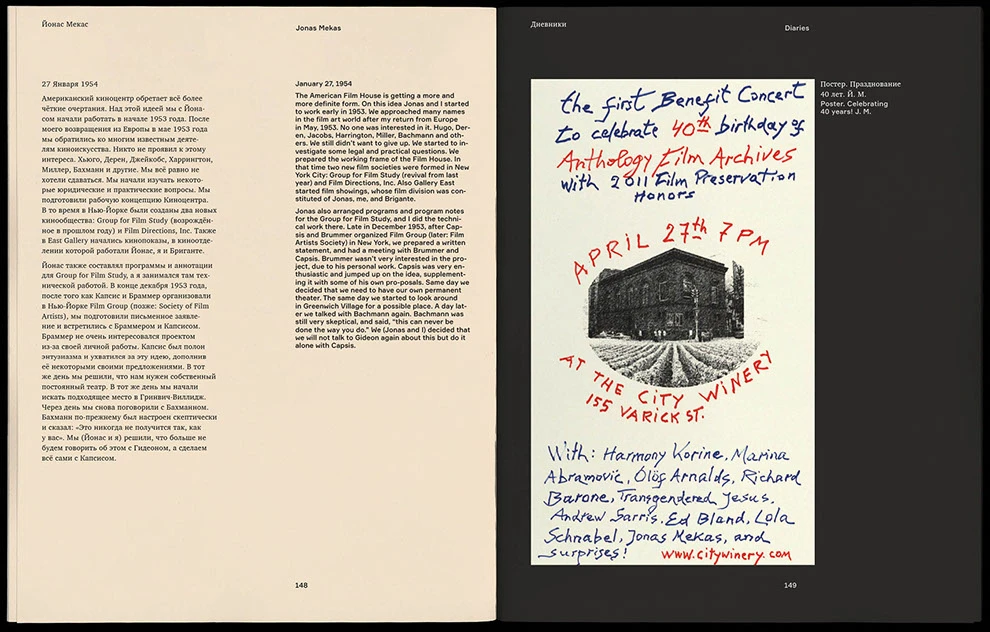 Йонас Мекас
Jonas Mekas
27 Января 1954
Американский киноцентр обретает всё более
чёткие очертания. Над этой идеей мы с Йона-
сом начали работать в начале 1953 года. После
моего возвращения из Европы в мае 1953 года
мы обратились ко многим известным деяте-
лям киноискусства. Никто не проявил к этому
интереса. Хьюго, Дерен, Джейкобс, Харрингтон,
Миллер, Бахманн и другие. Мы всё равно не
хотели сдаваться. Мы начали изучать некото-
рые юридические и практические вопросы. Мы
подготовили рабочую концепцию Киноцентра.
В то время в Нью-Йорке были созданы два новых
кинообщества: Group for Film Study (возрождён-
ное в прошлом году) и Film Directions, Inc. Также
в East Gallery начались кинопоказы, в киноотде-
лении которой работали Йонас, я и Бриганте.
Йонас также составлял программы и аннотации
для Group for Film Study, а я занимался там тех-
нической работой. В конце декабря 1953 года,
после того как Капсис и Брамер организовали
в Нью-Йорке Film Group (позже: Society of Film
Artists), мы подготовили письменное заявле-
ние и встретились с Браммером и Капсисом.
Браммер не очень интересовался проектом
из-за своей личной работы. Капсис был полон
энтузиазма и ухватился за эту идею, дополнив
её некоторыми своими предложениями. В тот
же день мы решили, что нам нужен собственный
постоянный театр. В тот же день мы начали
искать подходящее место в Гринвич-Виллидж.
Через день мы снова поговорили с Бахманном.
Бахманн по-прежнему был настроен скептически
и сказал: «Это никогда не получится так, как
у вас». Мы (Йонас и я) решили, что больше не
будем говорить об этом с Гидеоном, а сделаем
всё сами с Капсисом.
January 27, 1954
The American Film House is getting a more and
more definite form. On this idea Jonas and I started
to work early in 1953. We approached many names
in the film art world after my return from Europe
in May, 1953. No one was interested in it. Hugo, Der-
en, Jacobs, Harrington, Miller, Bachmann and oth-
ers. We still didn't want to give up. We started to in-
vestigate some legal and practical questions. We
prepared the working frame of the Film House. In
that time two new film societies were formed in New
York City: Group for Film Study (revival from last
year) and Film Directions, Inc. Also Gallery East
started film showings, whose film division was con-
stituted of Jonas, me, and Brigante.
Jonas also arranged programs and program notes
for the Group for Film Study, and I did the techni-
cal work there. Late in December 1953, after Cap-
sis and Brummer organized Film Group (later: Film
Artists Society) in New York, we prepared a written
statement, and had a meeting with Brummer and
Capsis. Brummer wasn't very interested in the pro-
ject, due to his personal work. Capsis was very en-
thusiastic and jumped up on the idea, supplement-
ing it with some of his own pro-posals. Same day we
decided that we need to have our own permanent
theater. The same day we started to look around
in Greenwich Village for a possible place. A day lat-
er we talked with Bachmann again. Bachmann was
still very skeptical, and said, "this can never be
done the way you do." We (Jonas and I) decided that
we will not talk to Gideon again about this but do it
alone with Capsis.
148
Дневники
Diaries
the first Benefit Concert
to celebrate 40th birthday of
Anthology Film Archives
with 2011 Film Preservation
Honors
APRIL 27th 7 PM
AT THE CITY WINERY
155 VARICK ST.
With: Harmony Korine, Marina
Abramovic, Ólöf Arnalds, Richard
Barone, Transgendered Jesus,
Andrew Sarris, Ed Bland, Lola
Schnabel, Jonas Mekas, and
surprises!
www.citywinery.com
Постер. Празднование
40 лет. Й. М.
Poster. Celebrating
40 years! J. M.
149